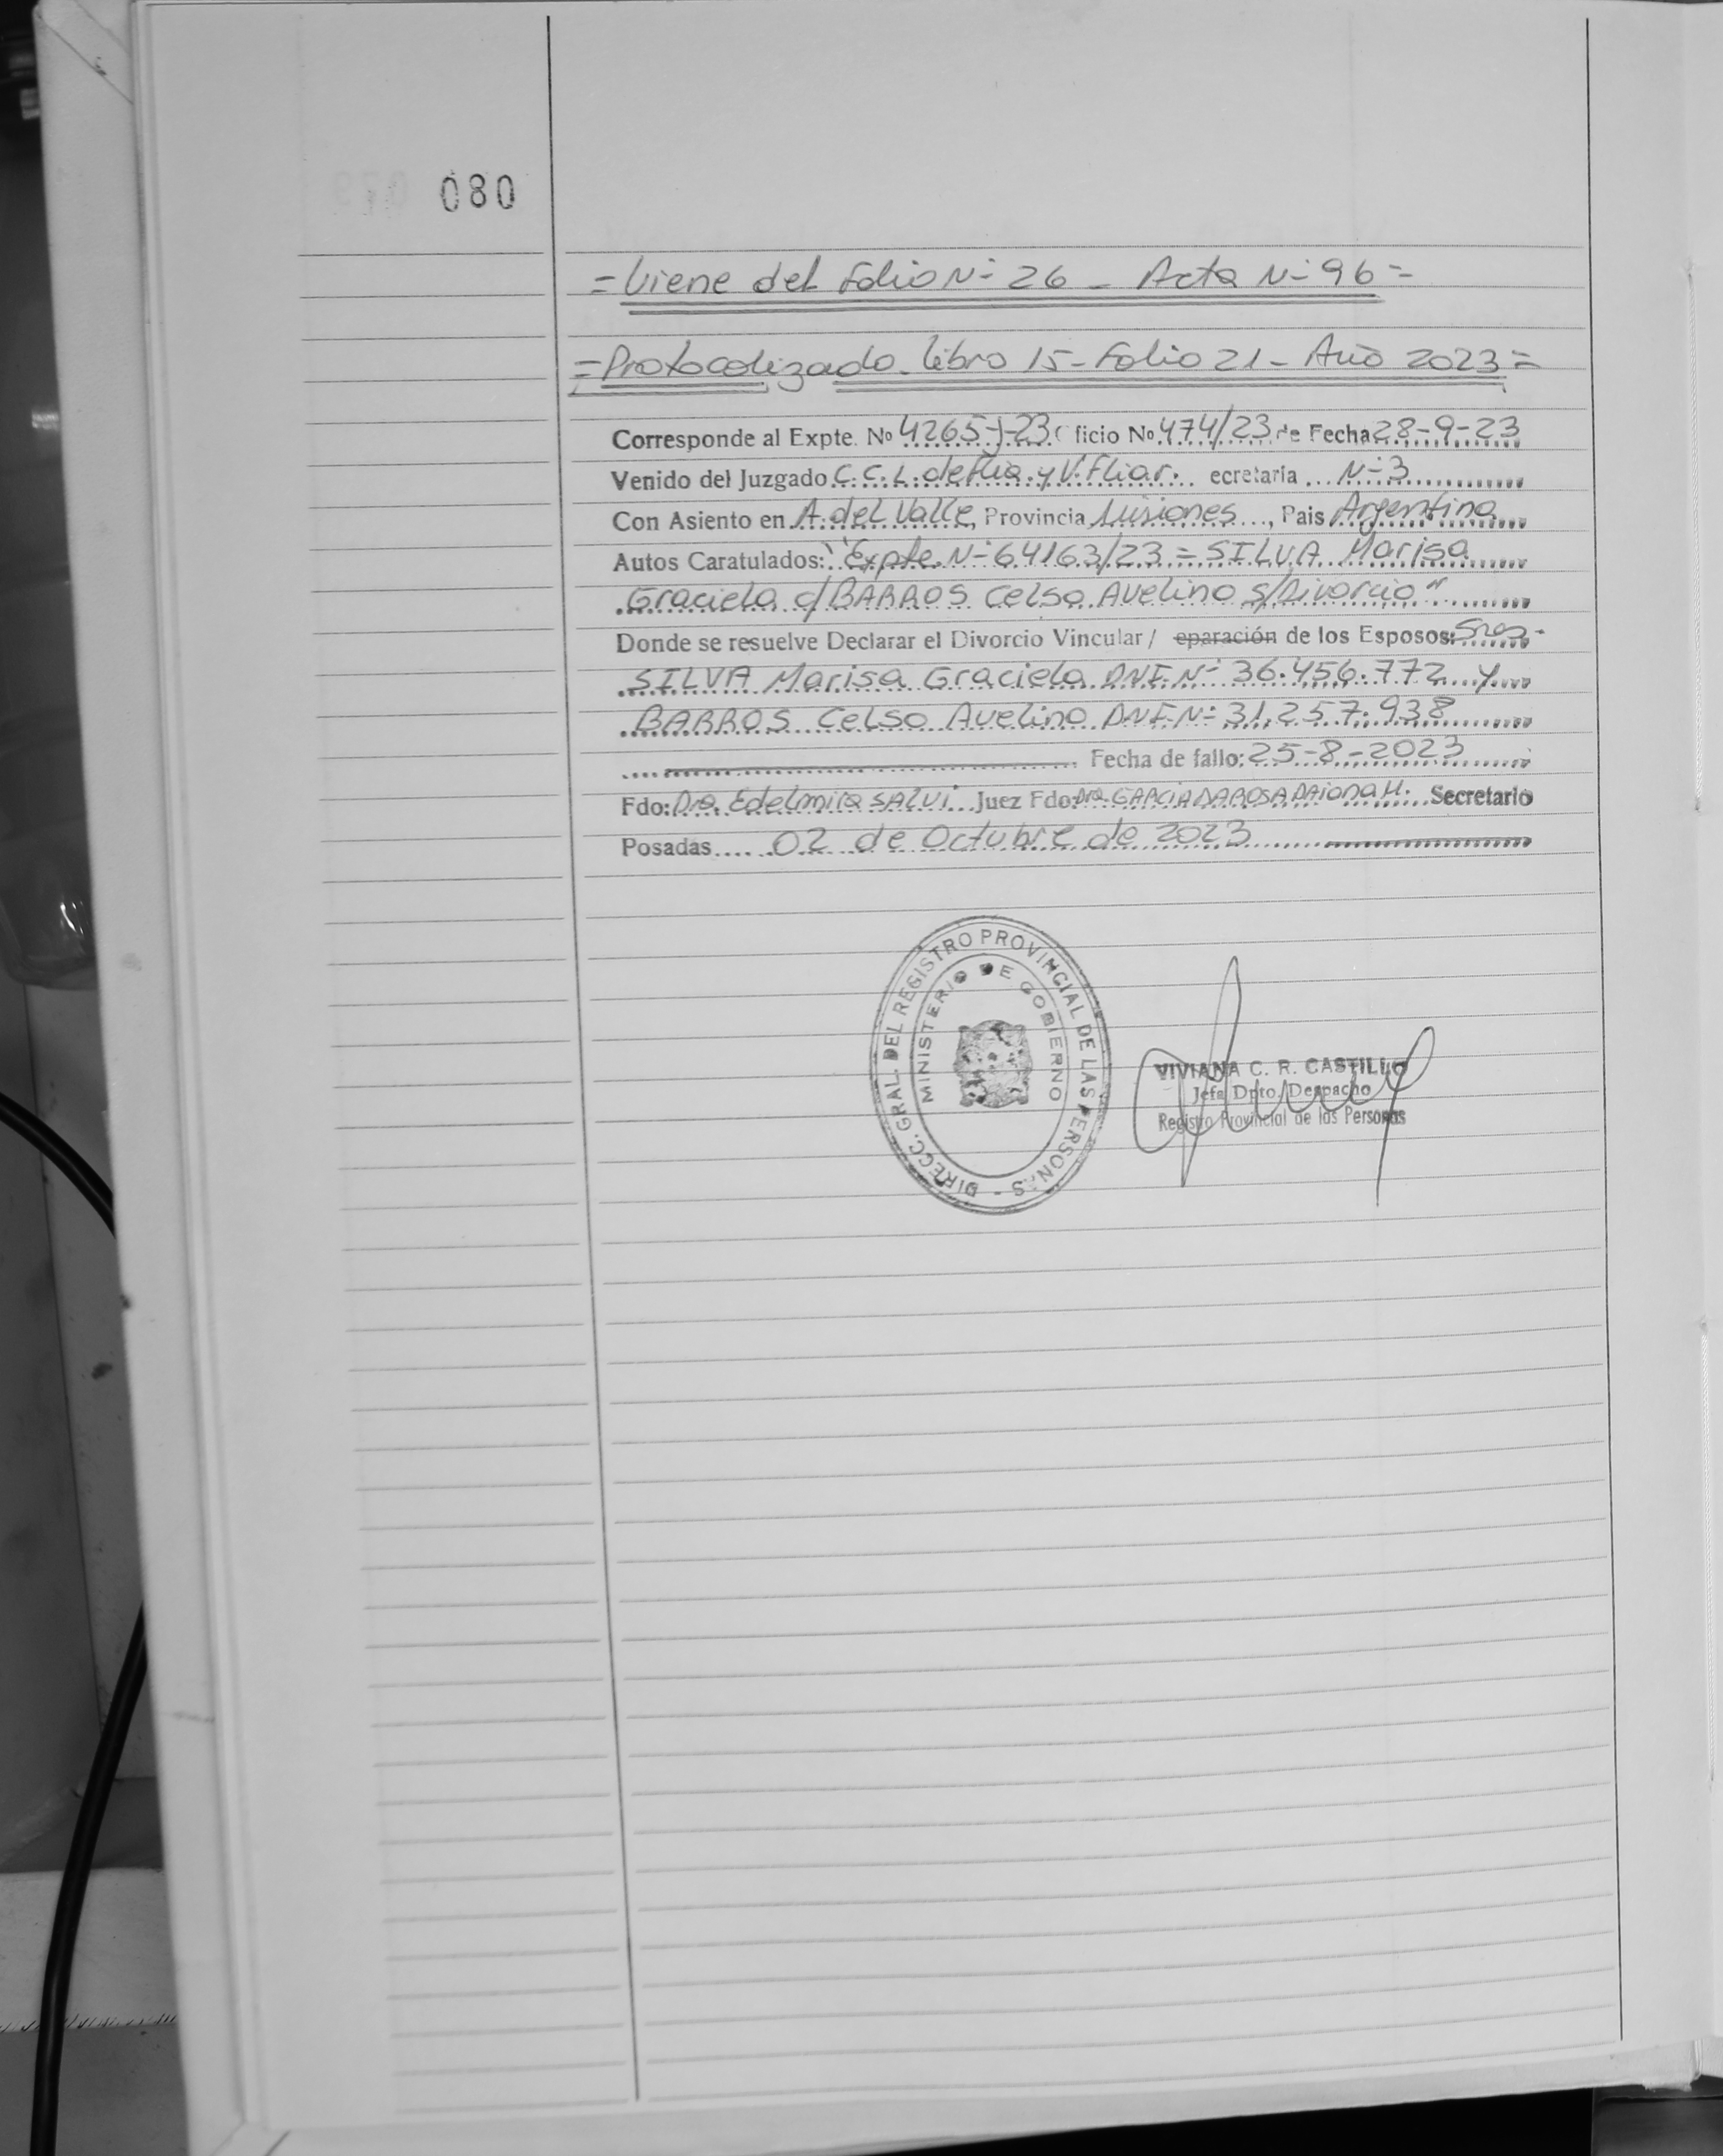 080
= Viene del Folio Nº 26 - Acta Nº 96 =
= Protocolizado - Libro 15 - Folio 21 - Año 2023 =
Corresponde al Expte. Nº 4265-J-23 ficio Nº 474/23 de Fecha 28-9-23
Venido del Juzgado C.C.L. de Flia. y V. Fliar. ecretaria ... Nº 3
Con Asiento en A. del Valle, Provincia Misiones ..., Pais Argentina
Autos Caratulados: "Expte. Nº 64163/23 = SILVA Marisa
Graciela c/ BARROS Celso Avelino s/Divorcio"
Donde se resuelve Declarar el Divorcio Vincular / eparación de los Esposos: Sres.
SILVA Marisa Graciela DNI Nº 36.456.772 y
BARROS Celso Avelino DNI Nº 31.257.938
Fecha de fallo: 25-8-2023
Fdo: Dra. Edelmira SALVI Juez Fdo: Dra. GARCIA DAROSA DAIANA H. Secretario
Posadas ... 02 de Octubre de 2023
DIRECC. GRAL. DEL REGISTRO PROVINCIAL DE LAS PERSONAS -
MINISTERIO DE GOBIERNO
VIVIANA C. R. CASTILLO
Jefa Dpto. Despacho
Registro Provincial de las Personas